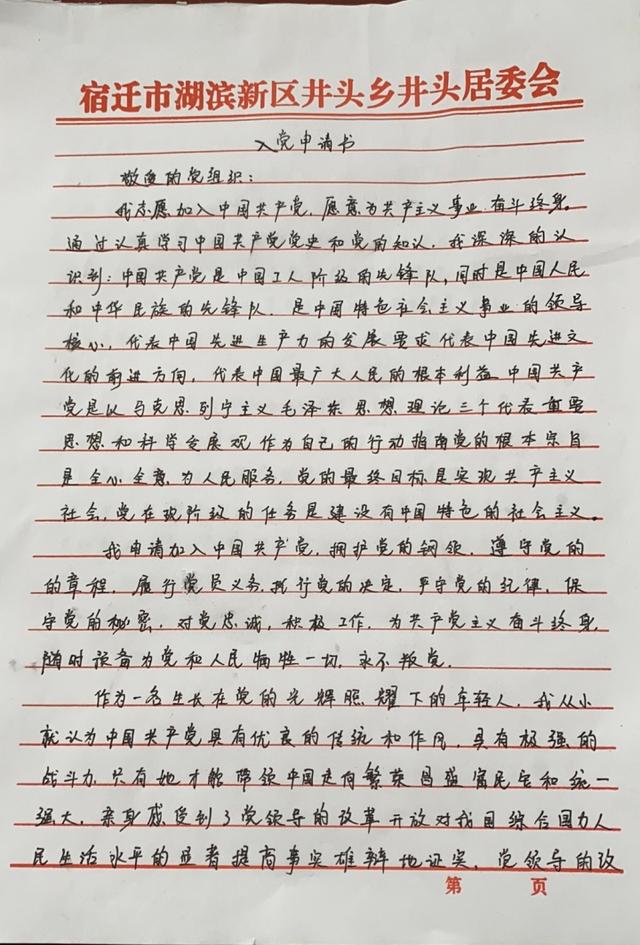 宿迁市湖滨新区井头乡井头居委会
入党申请书
敬爱的党组织：
我志愿加入中国共产党，愿意为共产主义事业奋斗终身。
通过认真学习中国共产党党史和党的知认，我深深的认
识到：中国共产党是中国工人阶级的先锋队，同时是中国人民
和中华民族的先锋队．是中国特色社会主义事业的领导
核心，代表中国先进生产力的发展要求代表中国先进文
化的前进方向，代表中国最广大人民的根本利益 中国共产
党是以马克思列宁主义毛泽东思想理论三个代表重要
思想和科学发展观作为自己的行动指南党的根本宗旨
是全心全意为人民服务，党的最终目标是实现共产主义
社会，党在现阶段的任务是建设有中国特色的社会主义。
我申请加入中国共产党，拥护党的钢领，遵守党的
的章程，履行党员义务，执行党的决定，严守党的纪律，保
守党的秘密，对党忠诚，积极工作，为共产党主义奋斗终身，
随时设备为党和人民牺牲一切，永不叛党．
作为一名生长在党的光辉照耀下的年轻人，我从小
就认为中国共产党具有优良的传统和作风，具有极强的
战斗力，只有她才能带领中国走向繁荣昌盛富民宅和统一
强大，亲身感受到了党领导的改革开放对我国综合国力人
民生活水平的显者提高事实雄辩地证实，党领导的改
第 页